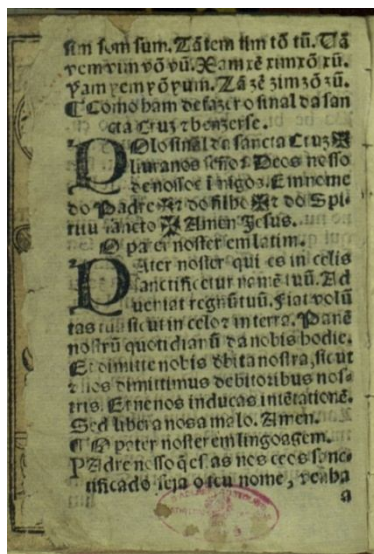 sim som sum. Tā tem tim tō tū. Uā
vem vim vō vū. Xam xē xim xō xū.
yam yem yō yum. Zā zē zim zō zū.
¶ Como ham de fazer o sinal da san
cta Cruz ⁊ benzerse.
POlo sinal da sancta Cruz ✠
liuranos señor Deos nosso
de nossos īmigos. Em nome
do Padre ✠ ⁊ do filho ✠ ⁊ do Spi
ritu sancto ✠ Amen Jesus.
O pater noster em latim.
PAter noster qui es in celis
sanctificetur nomē tuū. Ad
ueniat regnū tuū. Fiat volū
tas tua sicut in celo ⁊ in terra. Panē
nostrū quotidianū da nobis hodie.
Et dimitte nobis dbita nostra, sicut
⁊ nos dimittimus debitoribus nos-
tris. Et ne nos inducas in tētationē.
Sed libera nos a malo. Amen.
¶ O pater noster em lingoagem.
PAdre nosso q̄ es as nos ceos sanc-
tificado seja o seu nome, venha
a